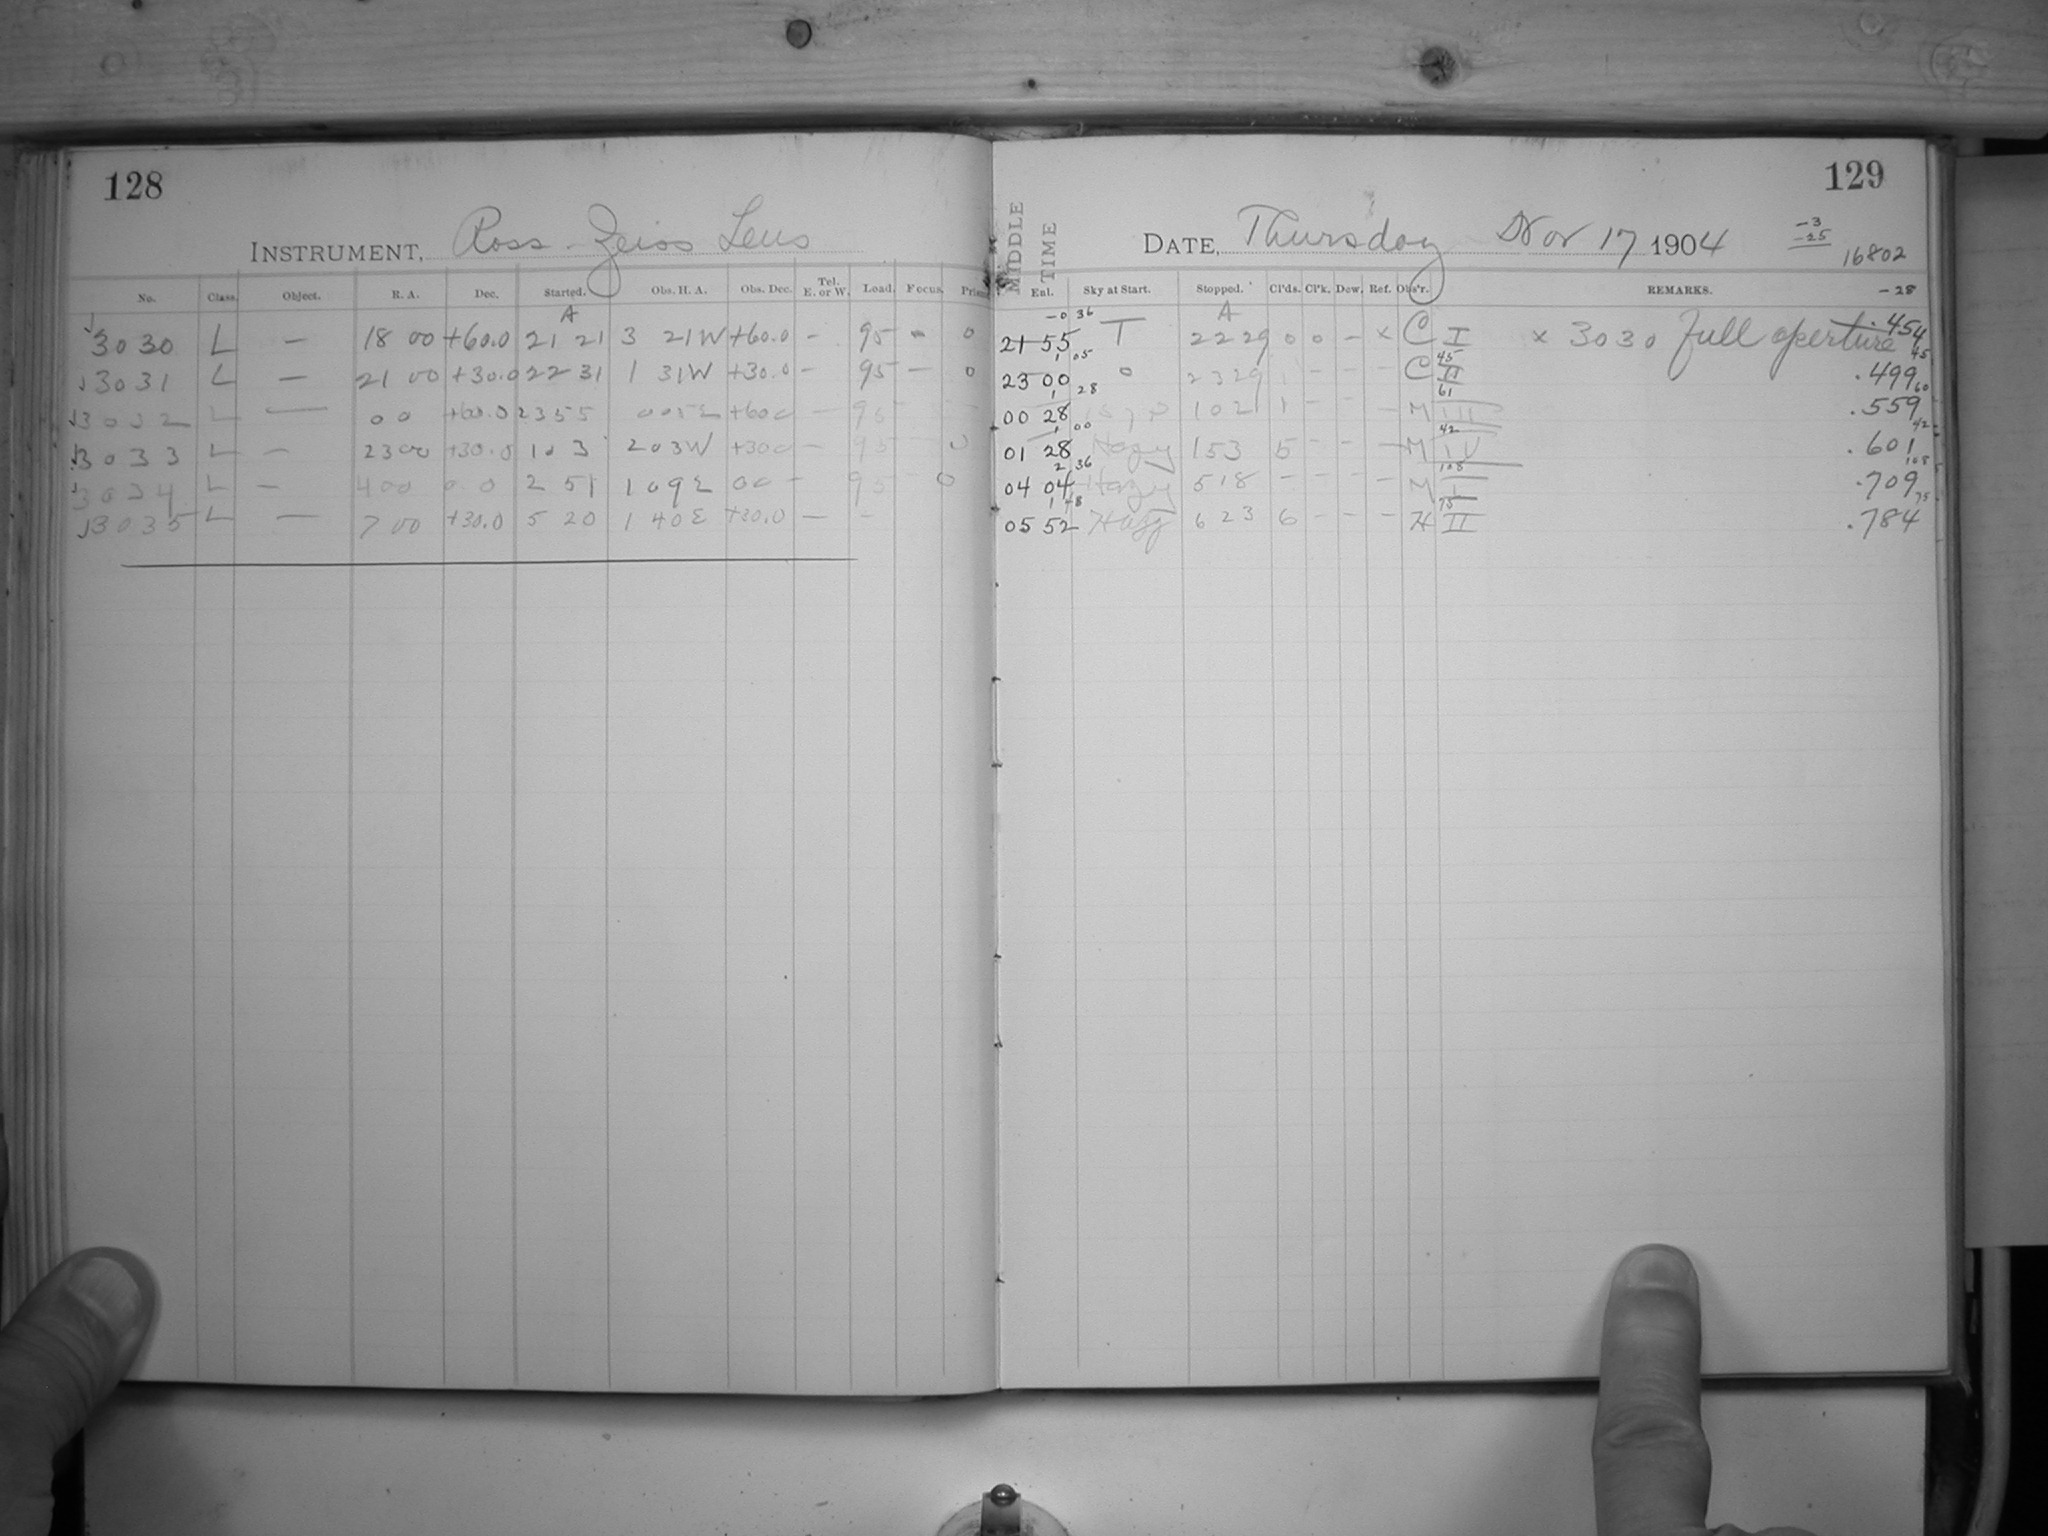 128
INSTRUMENT, Ross-Zeiss Lens
No. Class. Object. R. A. Dec. Started. Obs. H. A. Obs. Dec. Tel. E. or W. Load. Focus.
A
3030 L — 18 00 +60.0 21 21 3 21W +60.0 - 95 - 0
3031 L — 21 00 +30.0 22 31 1 31W +30.0 - 95 - 0
3032 L — 0 0 +60.0 23 55 0 05E +600 — 95
3033 L — 2300 +30.0 1 03 2 03W +300 - 95 0
3034 L — 400 0.0 2 51 1 09E 00 - 95 0
3035 L — 7 00 +30.0 5 20 1 40E +30.0 — -
129
MIDDLE TIME
DATE, Thursday Nov 17 1904
-3
-25
16802
Enl. Sky at Start. Stopped. Cl'ds. Cl'k. Dew. Ref. Obs'r. REMARKS. -28
-0 36 A
21 55 T 2229 0 0 - x C I x 3030 full aperture .454
1 05 45 45
23 00 0 2329 1 - - - C II .499
1 28 61 60
00 28 1 02 1 - - - M III .559
1 00 42 42
01 28 Hazy 153 5 - - - M IV .601
2 36 108 108
04 04 Hazy 518 - - - - M I .709
1 48 75 75
05 52 Hazy 6 23 6 - - - H II .784